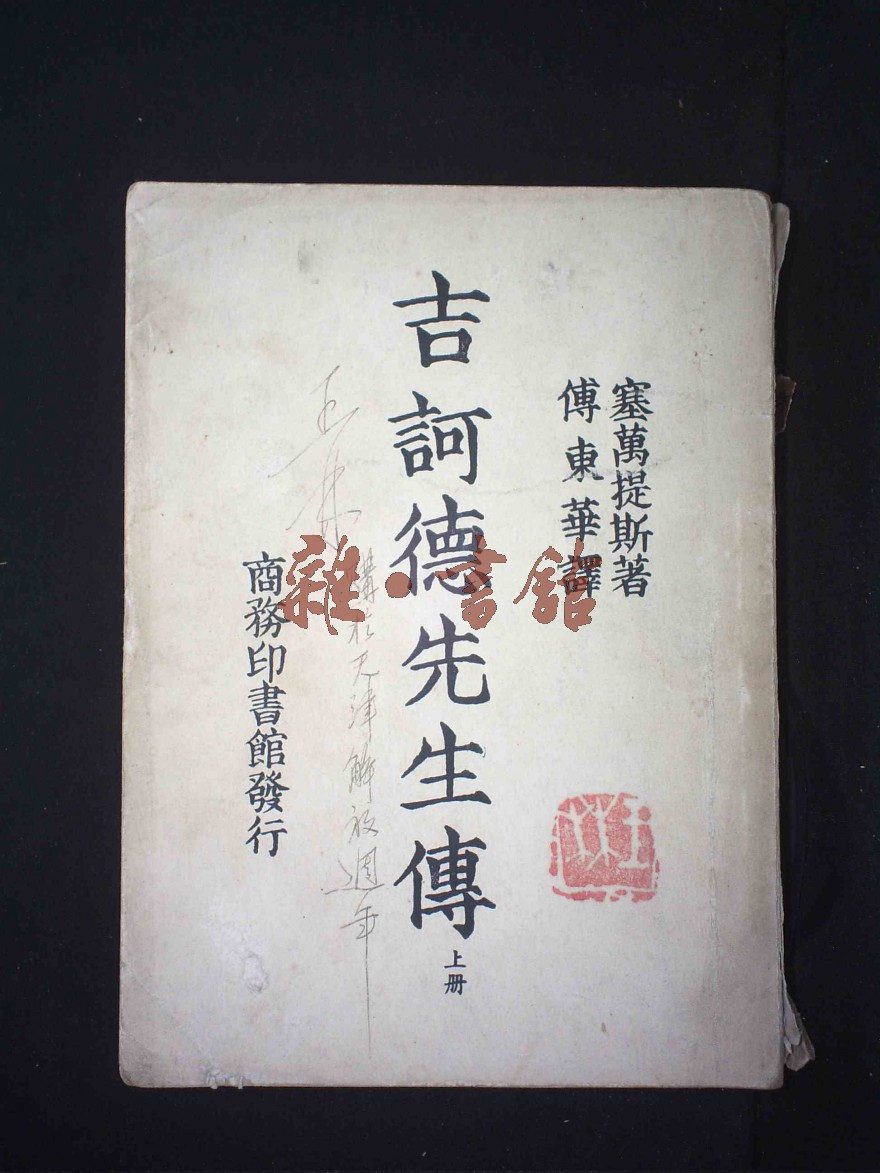 塞萬提斯著
傅東華譯
吉訶德先生傳
上册
購於天津解放週年
商務印書館發行
雜·書館